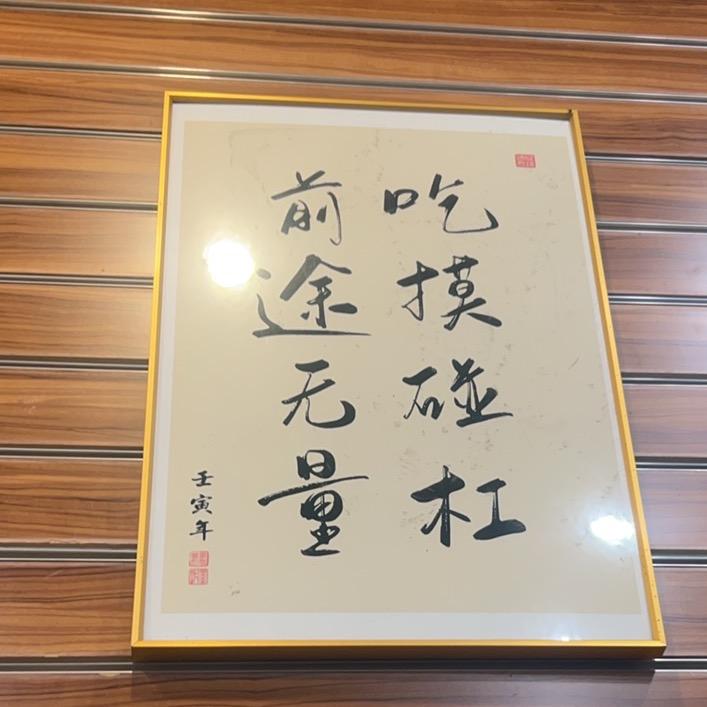 吃摸碰杠
前途无量
壬寅年